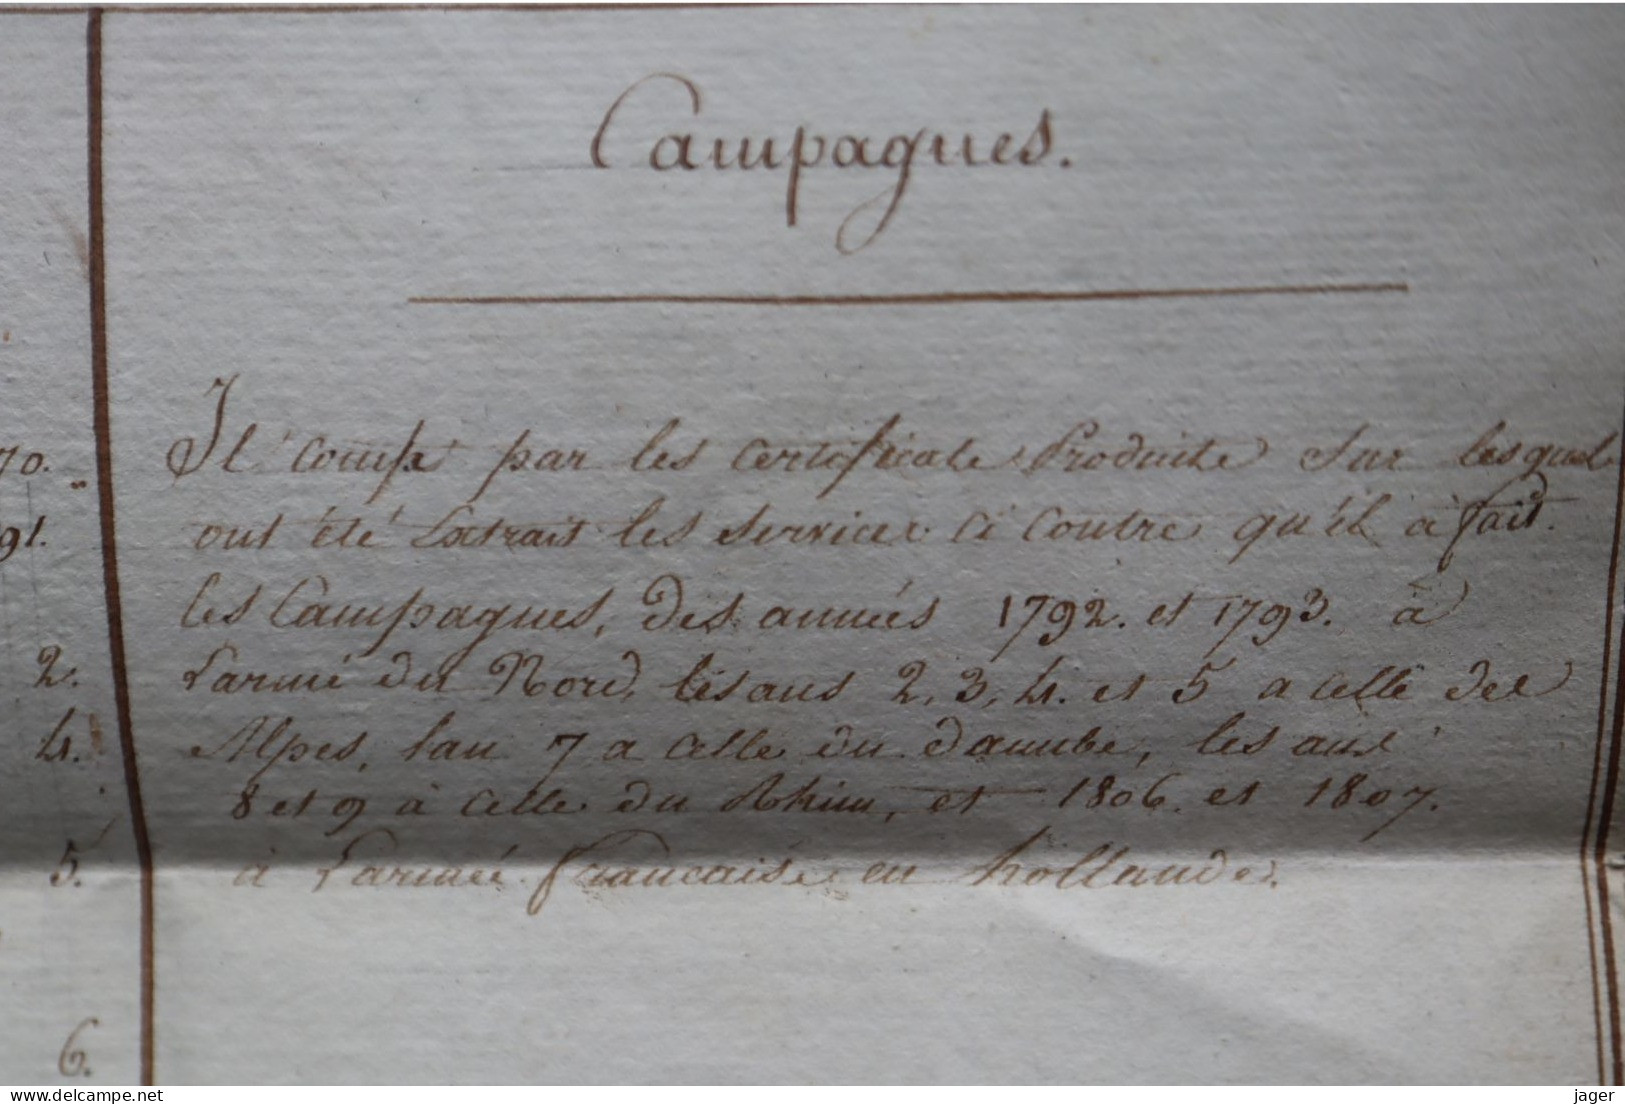 Campagnes.
70. Il compt par les certificats Produits Sur lesquels
91. ont été Extrait les services ci contre qu'il à fait
les Campagnes, des années 1792. et 1793. à
2. L'armé du Nord, les ans 2, 3, 4. et 5 a celle des
4. Alpes, lan 7 a celle du Danube, les ans
8 et 9 à celle du Rhin, et 1806. et 1807.
5. à L'armée francaise en hollande.
6.
delcampe.net
jager